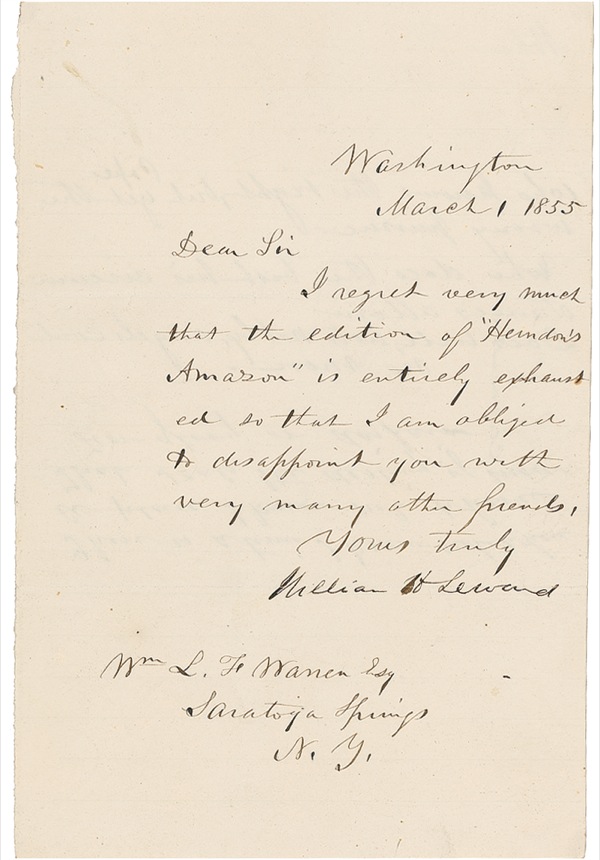 Washington
March 1 1855
Dear Sir
I regret very much
that the edition of "Herndon's
Amazon" is entirely exhaust
ed so that I am obliged
to disappoint you with
very many other friends,
Yours truly
William H Seward
Wm L. F Warren Esq
Saratoga Springs
N. Y.